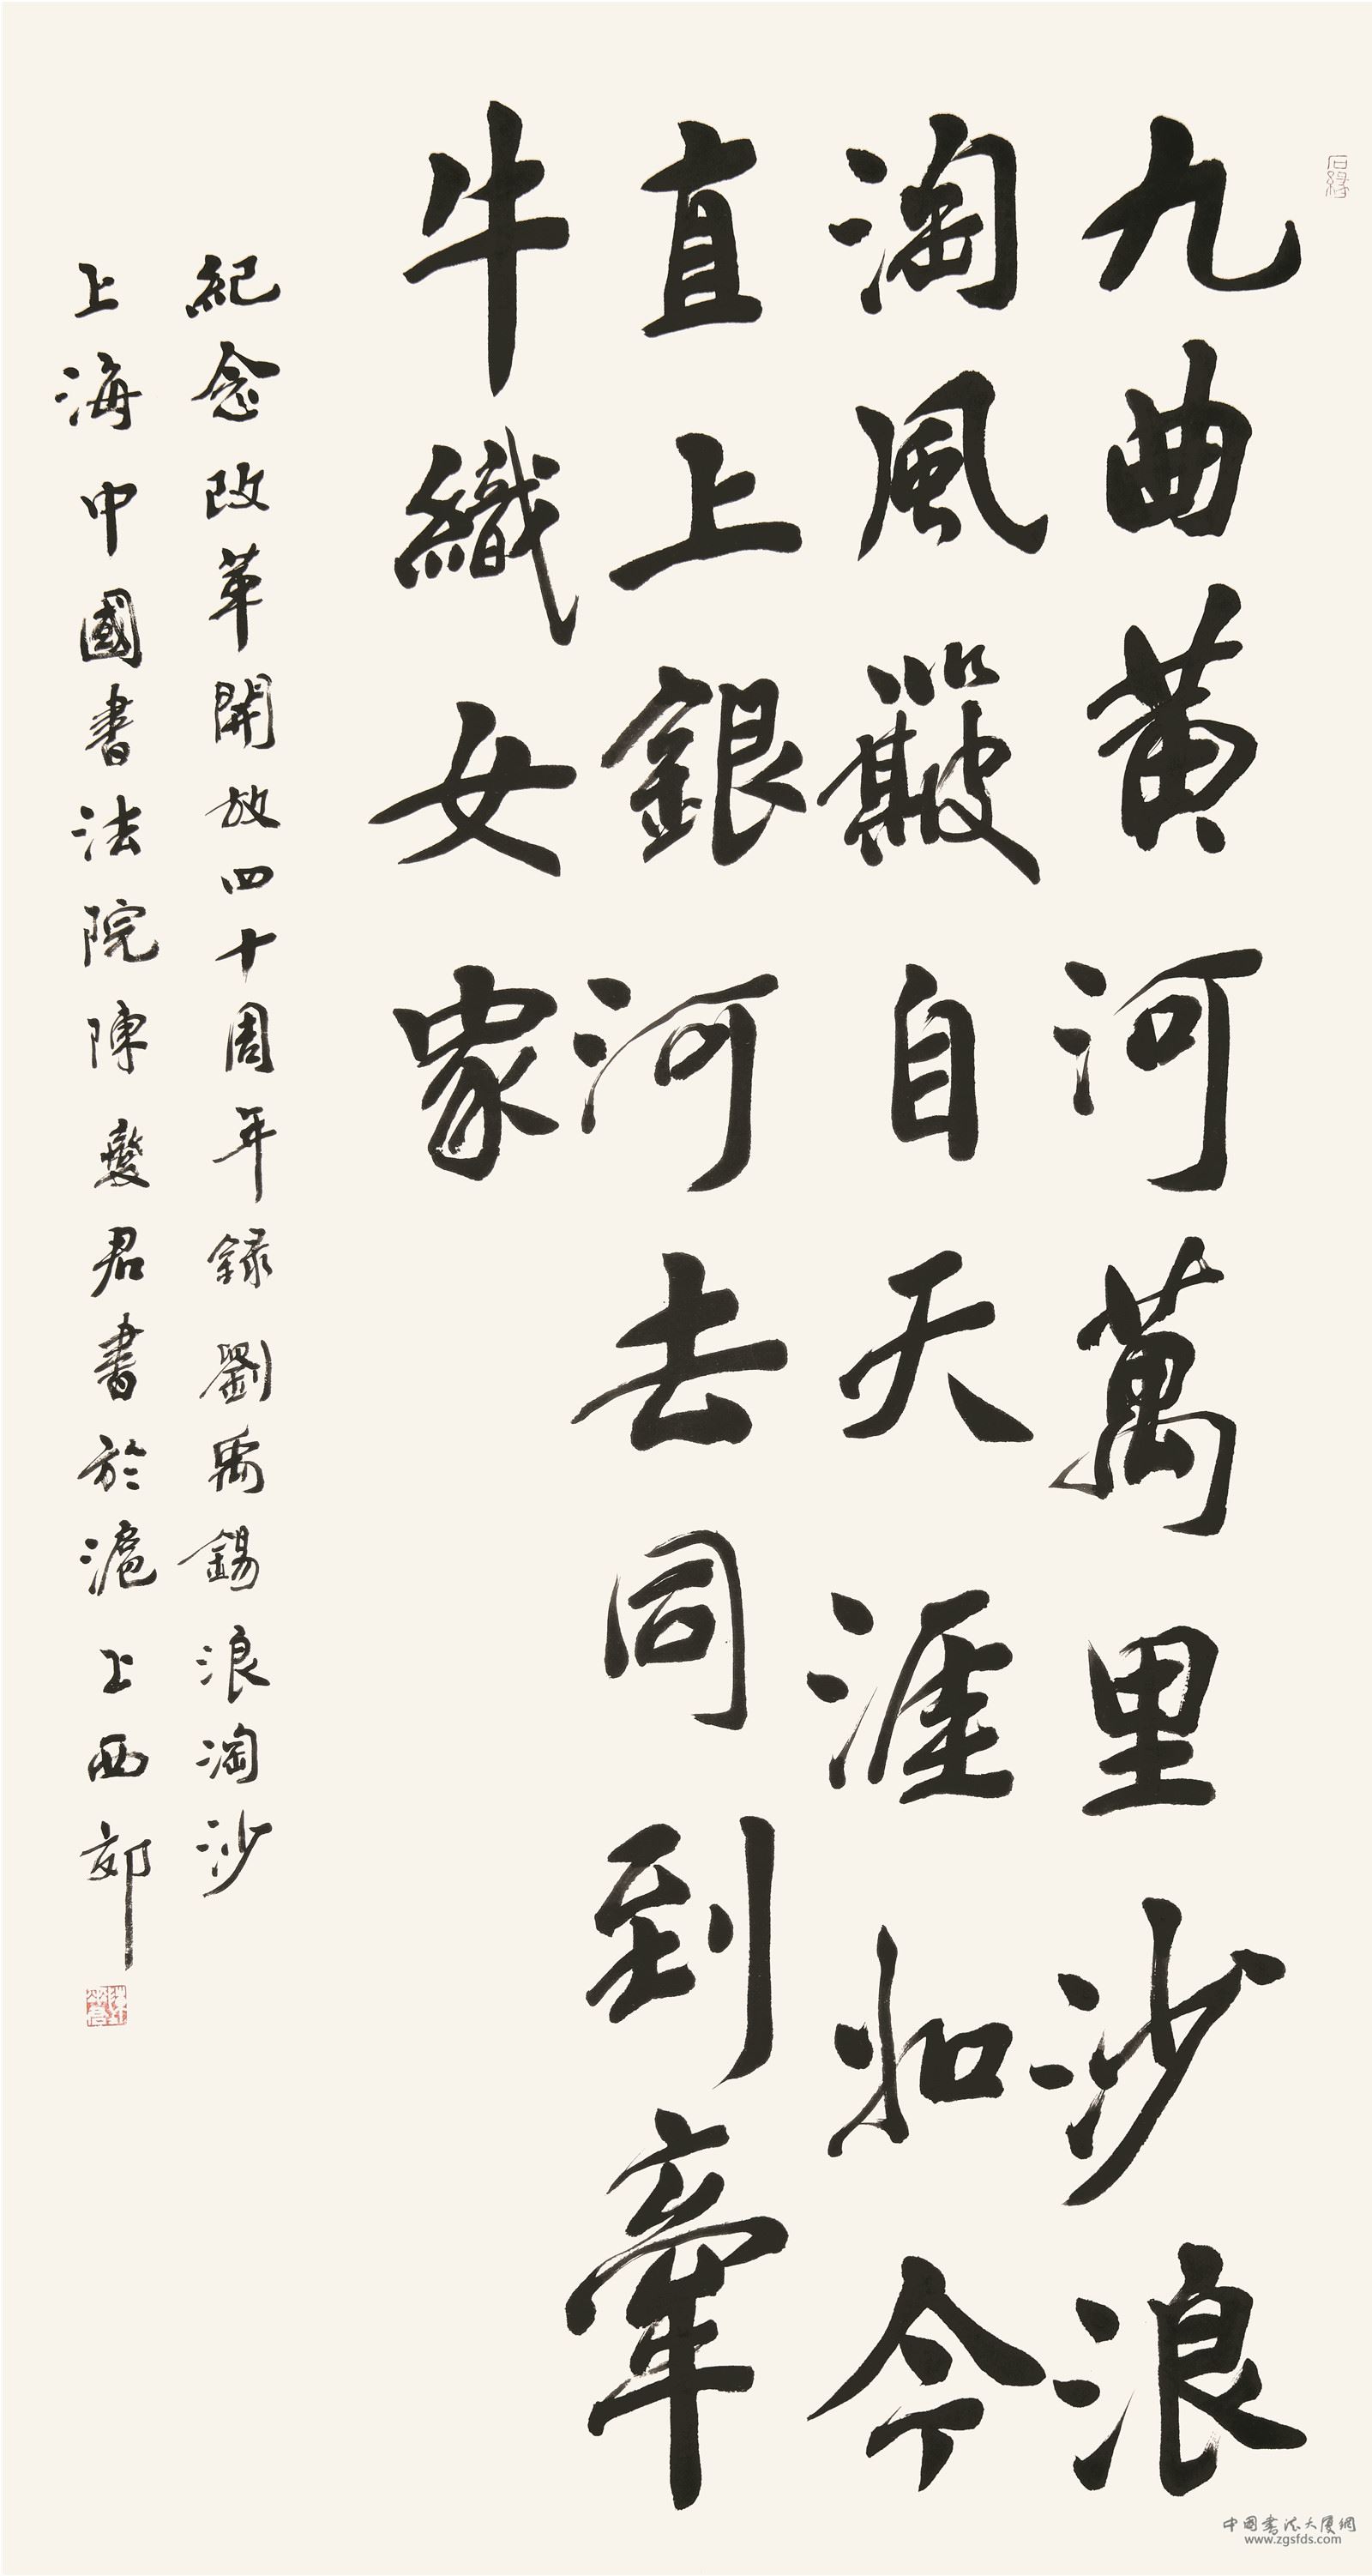 九曲黄河萬里沙浪
淘風簸自天涯如今
直上銀河去同到牽
牛織女家
紀念改革開放四十周年録劉禹錫浪淘沙
上海中國書法院陳燮君書於滬上西郊
石緣
中國書法大廈網
www.zgsfds.com